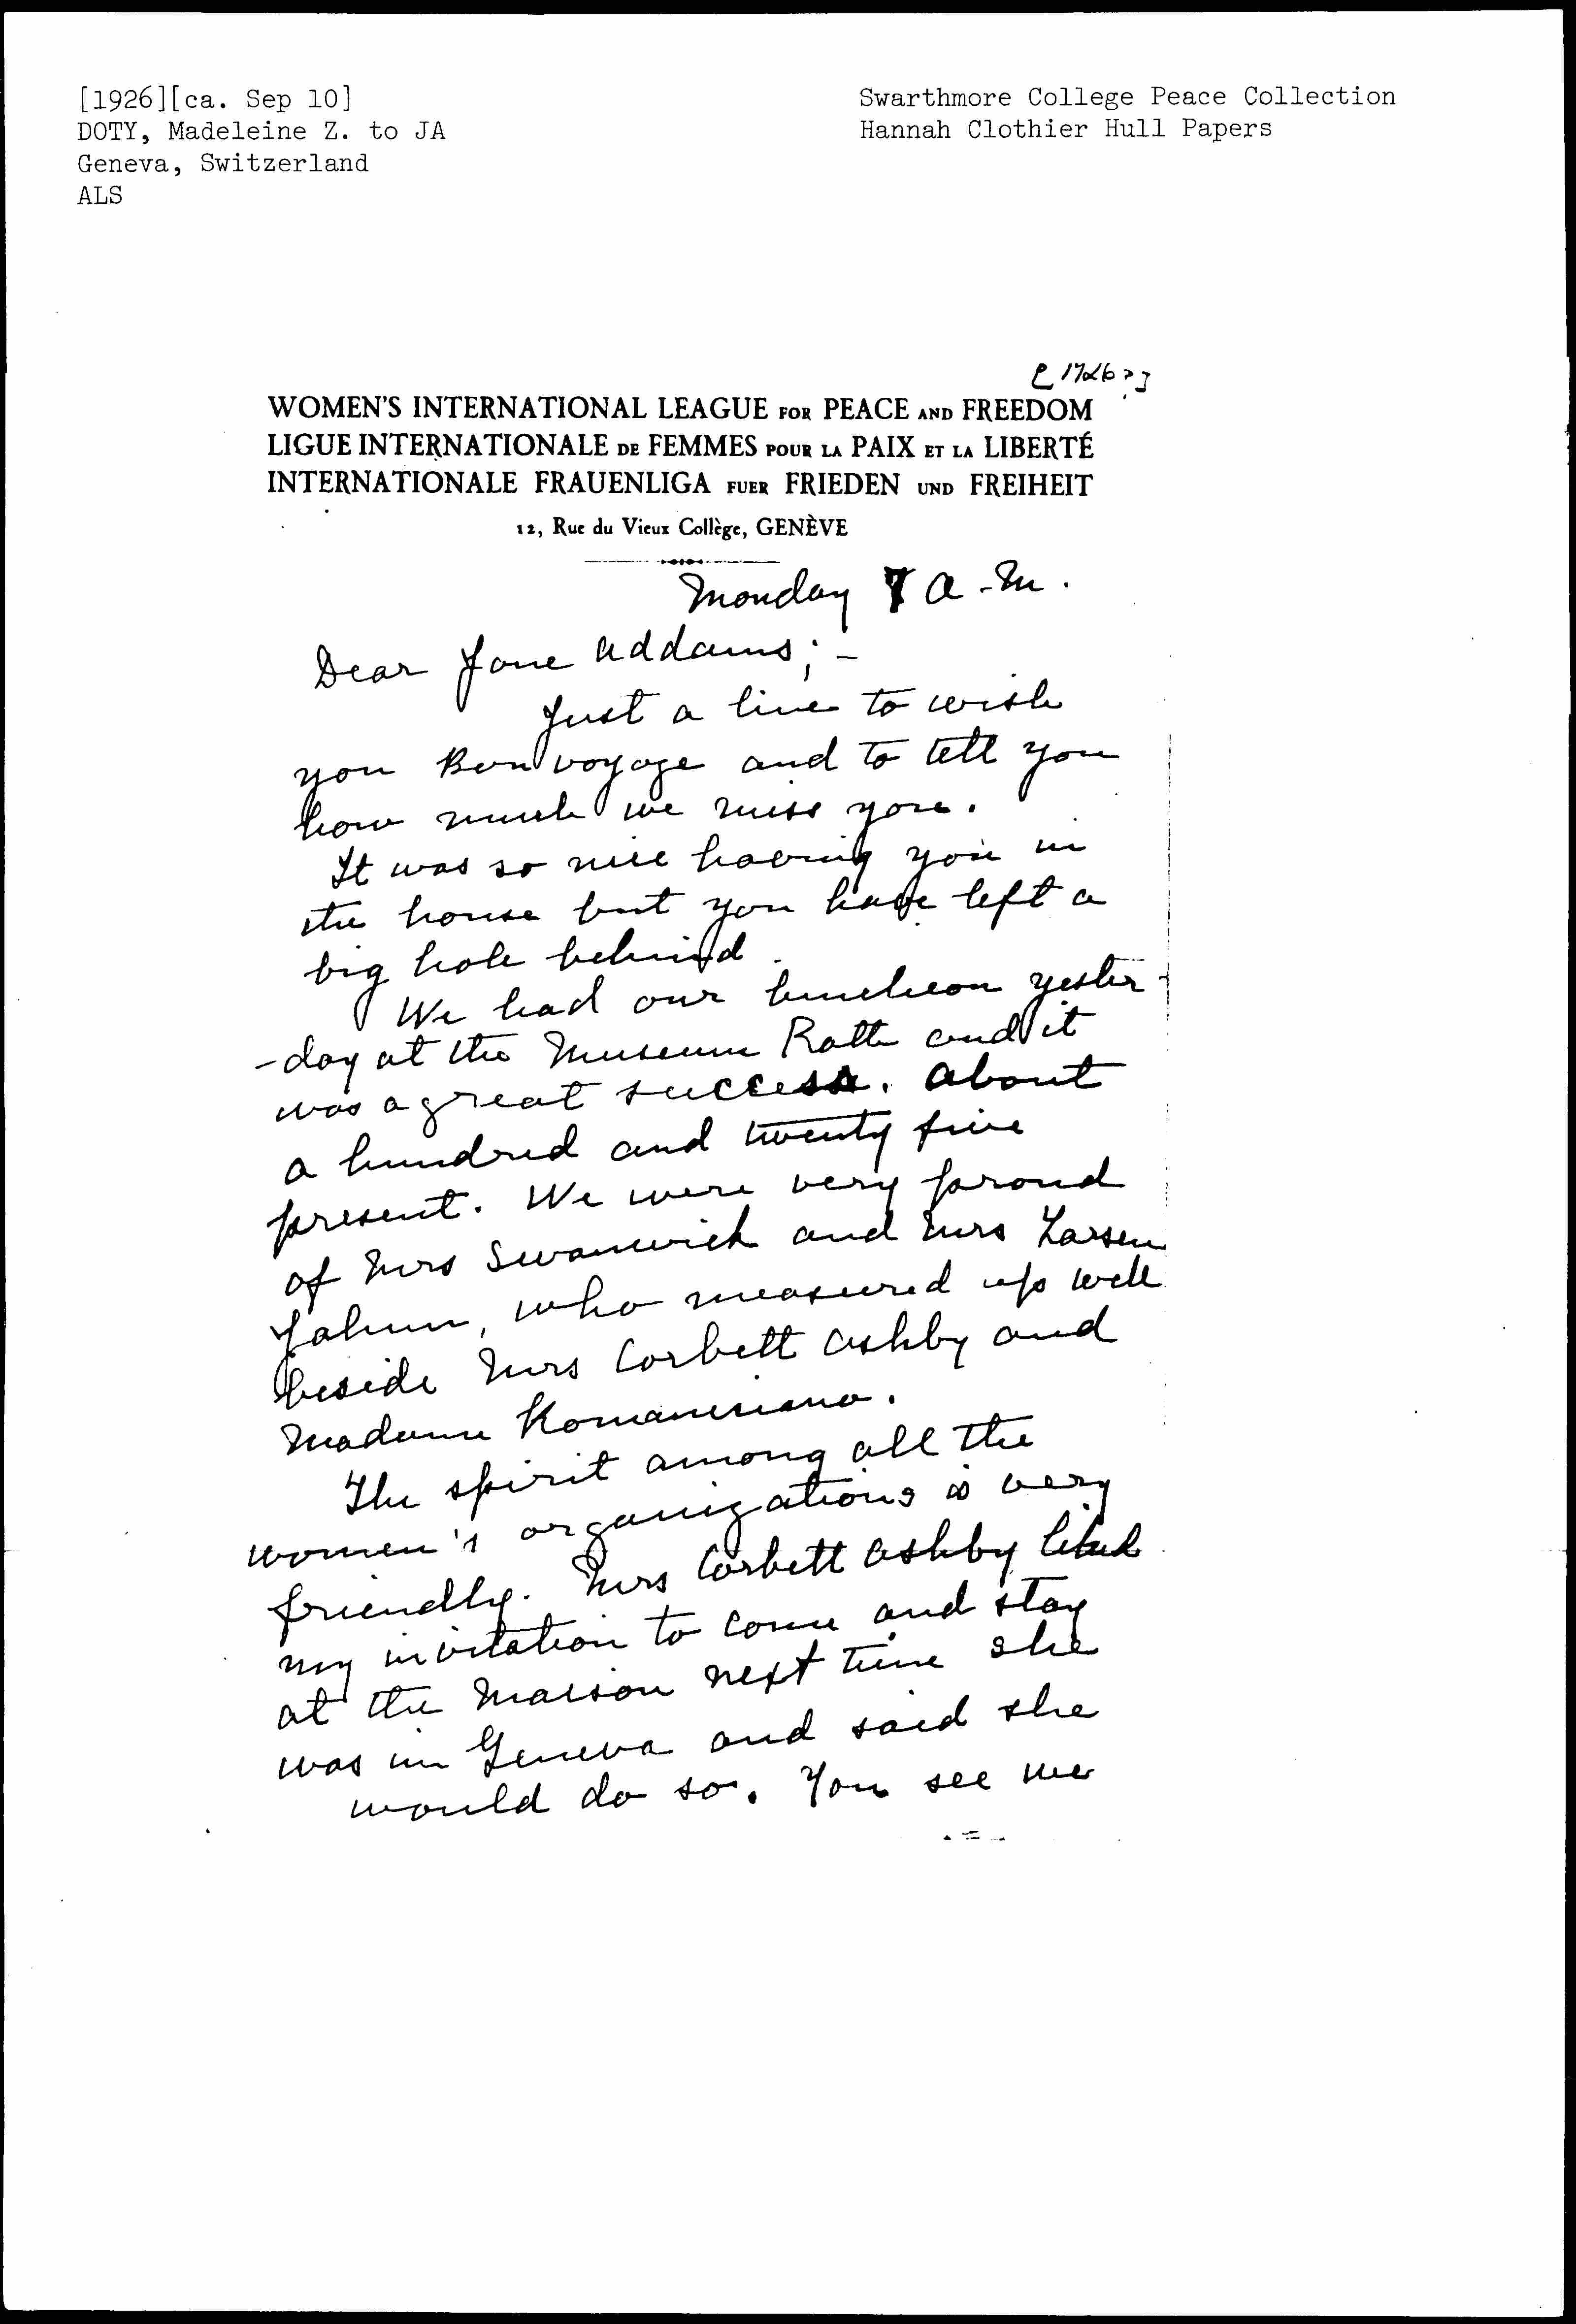 [1926][ca. Sep 10]
DOTY, Madeleine Z. to JA
Geneva, Switzerland
ALS
Swarthmore College Peace Collection
Hannah Clothier Hull Papers
[1926?]
WOMEN'S INTERNATIONAL LEAGUE FOR PEACE AND FREEDOM
LIGUE INTERNATIONALE DE FEMMES POUR LA PAIX ET LA LIBERTÉ
INTERNATIONALE FRAUENLIGA FUER FRIEDEN UND FREIHEIT
12, Rue du Vieux Collège, GENÈVE
Monday 7 A.M.
Dear Jane Addams; -
Just a line to wish
you Bon voyage and to tell you
how much we miss you.
It was so nice having you in
the house but you have left a
big hole behind.
We had our luncheon yester-
-day at the Museum Rath and it
was a great success. About
a hundred and twenty five
present. We were very proud
of Mrs Swanwick and Mrs Larsen
Jahnn, who measured up well
beside Mrs Corbett Ashby and
Madame Romanisiano.
The spirit among all the
women's organizations is very
friendly. Mrs Corbett Ashby liked
my invitation to come and stay
at the Maison next time she
was in Geneva and said she
would do so. You see we